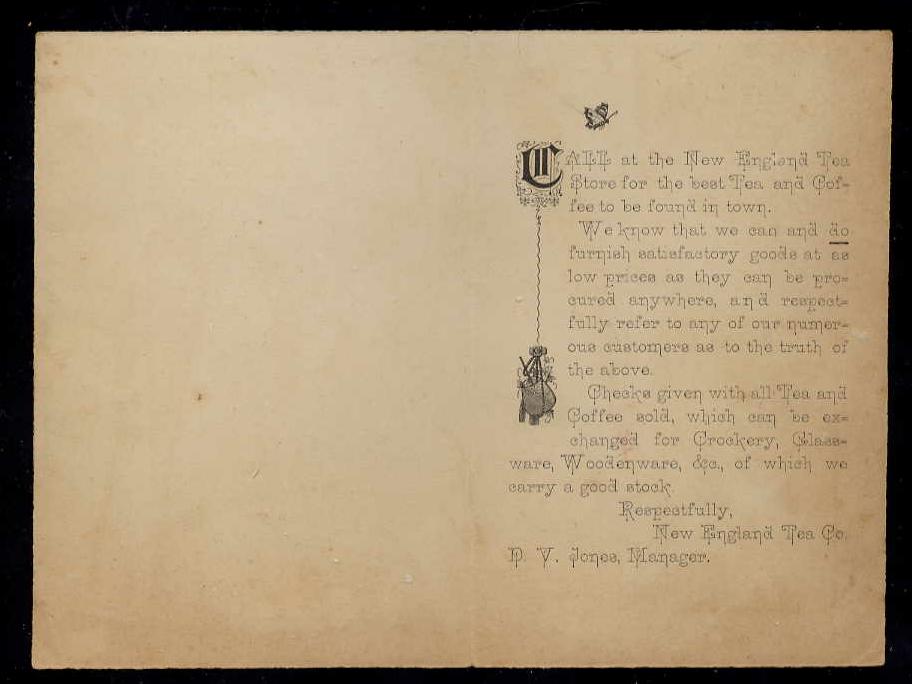 CALL at the New England Tea
Store for the best Tea and Cof-
fee to be found in town.
We know that we can and do
furnish satisfactory goods at as
low prices as they can be pro-
cured anywhere, and respect-
fully refer to any of our numer-
ous customers as to the truth of
the above.
Checks given with all Tea and
Coffee sold, which can be ex-
changed for Crockery, Glass-
ware, Woodenware, &c., of which we
carry a good stock.
Respectfully,
New England Tea Co.
D. V. Jones, Manager.